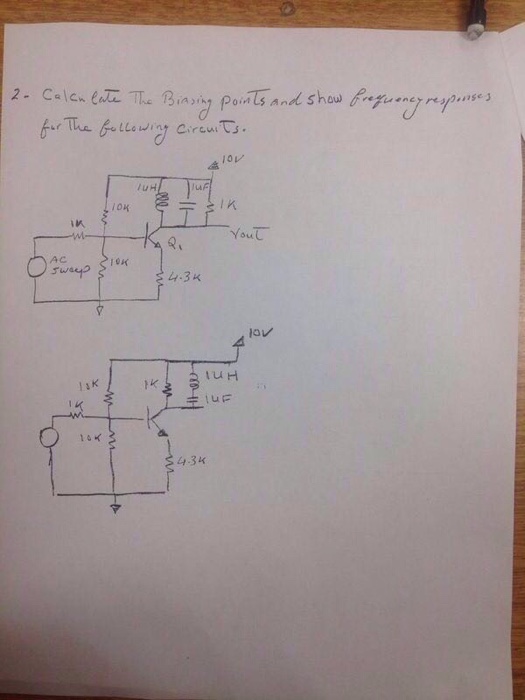 2- Calculate The Biasing points and show frequency responses
for The following circuits.
10V
1UH 1UF
10K 1K
1K Vout
Q1
AC
sweep 10K
4.3K
10V
10K 1K 1UH
1K 1UF
10K
4.3K